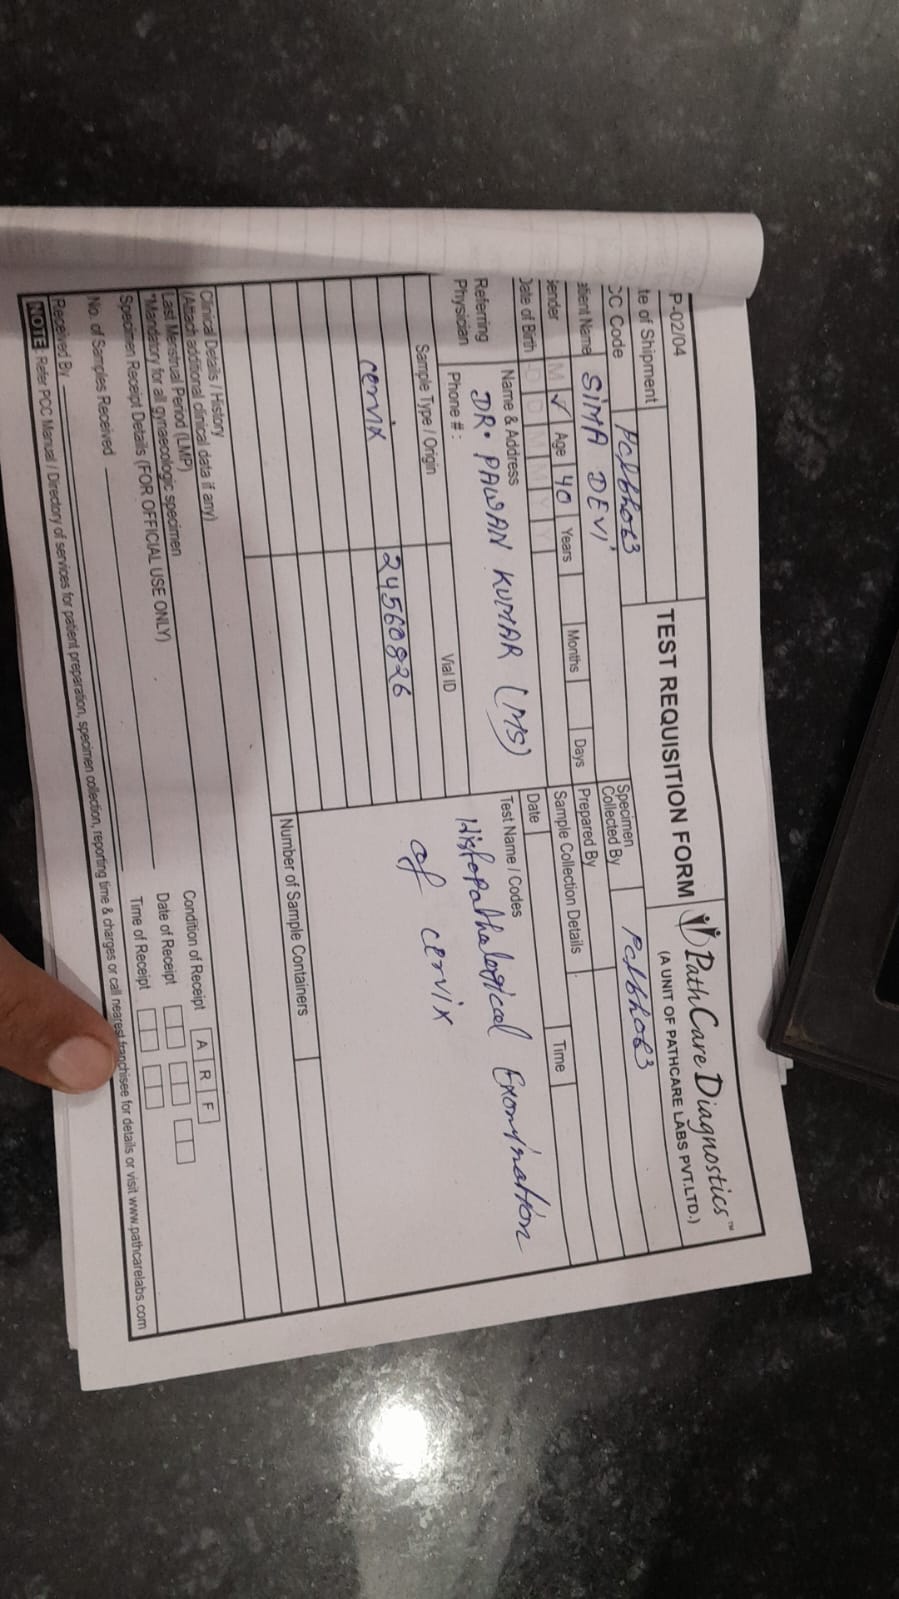 P-02/04
TEST REQUISITION FORM
PathCare Diagnostics™
(A UNIT OF PATHCARE LABS PVT.LTD.)
te of Shipment
CC Code
Specimen Collected By
atient Name SIMA DEVI
Prepared By
ender M ✓ Age 40 Years Months Days
Sample Collection Details
Date of Birth D D M M Y Y
Date Time
Referring Physician
Name & Address
DR. PAWAN KUMAR (MS)
Phone # :
Test Name / Codes
Histopathological Examination
of cervix
Sample Type / Origin Vial ID
cervix 24560826
Number of Sample Containers
Clinical Details / History
(Attach additional clinical data if any)
Last Menstrual Period (LMP)
*Mandatory for all gynaecologic specimen
Specimen Receipt Details (FOR OFFICIAL USE ONLY)
Condition of Receipt A R F
No. of Samples Received
Date of Receipt
Received By
Time of Receipt
NOTE : Refer PCC Manual / Directory of services for patient preparation, specimen collection, reporting time & charges or call nearest franchisee for details or visit www.pathcarelabs.com